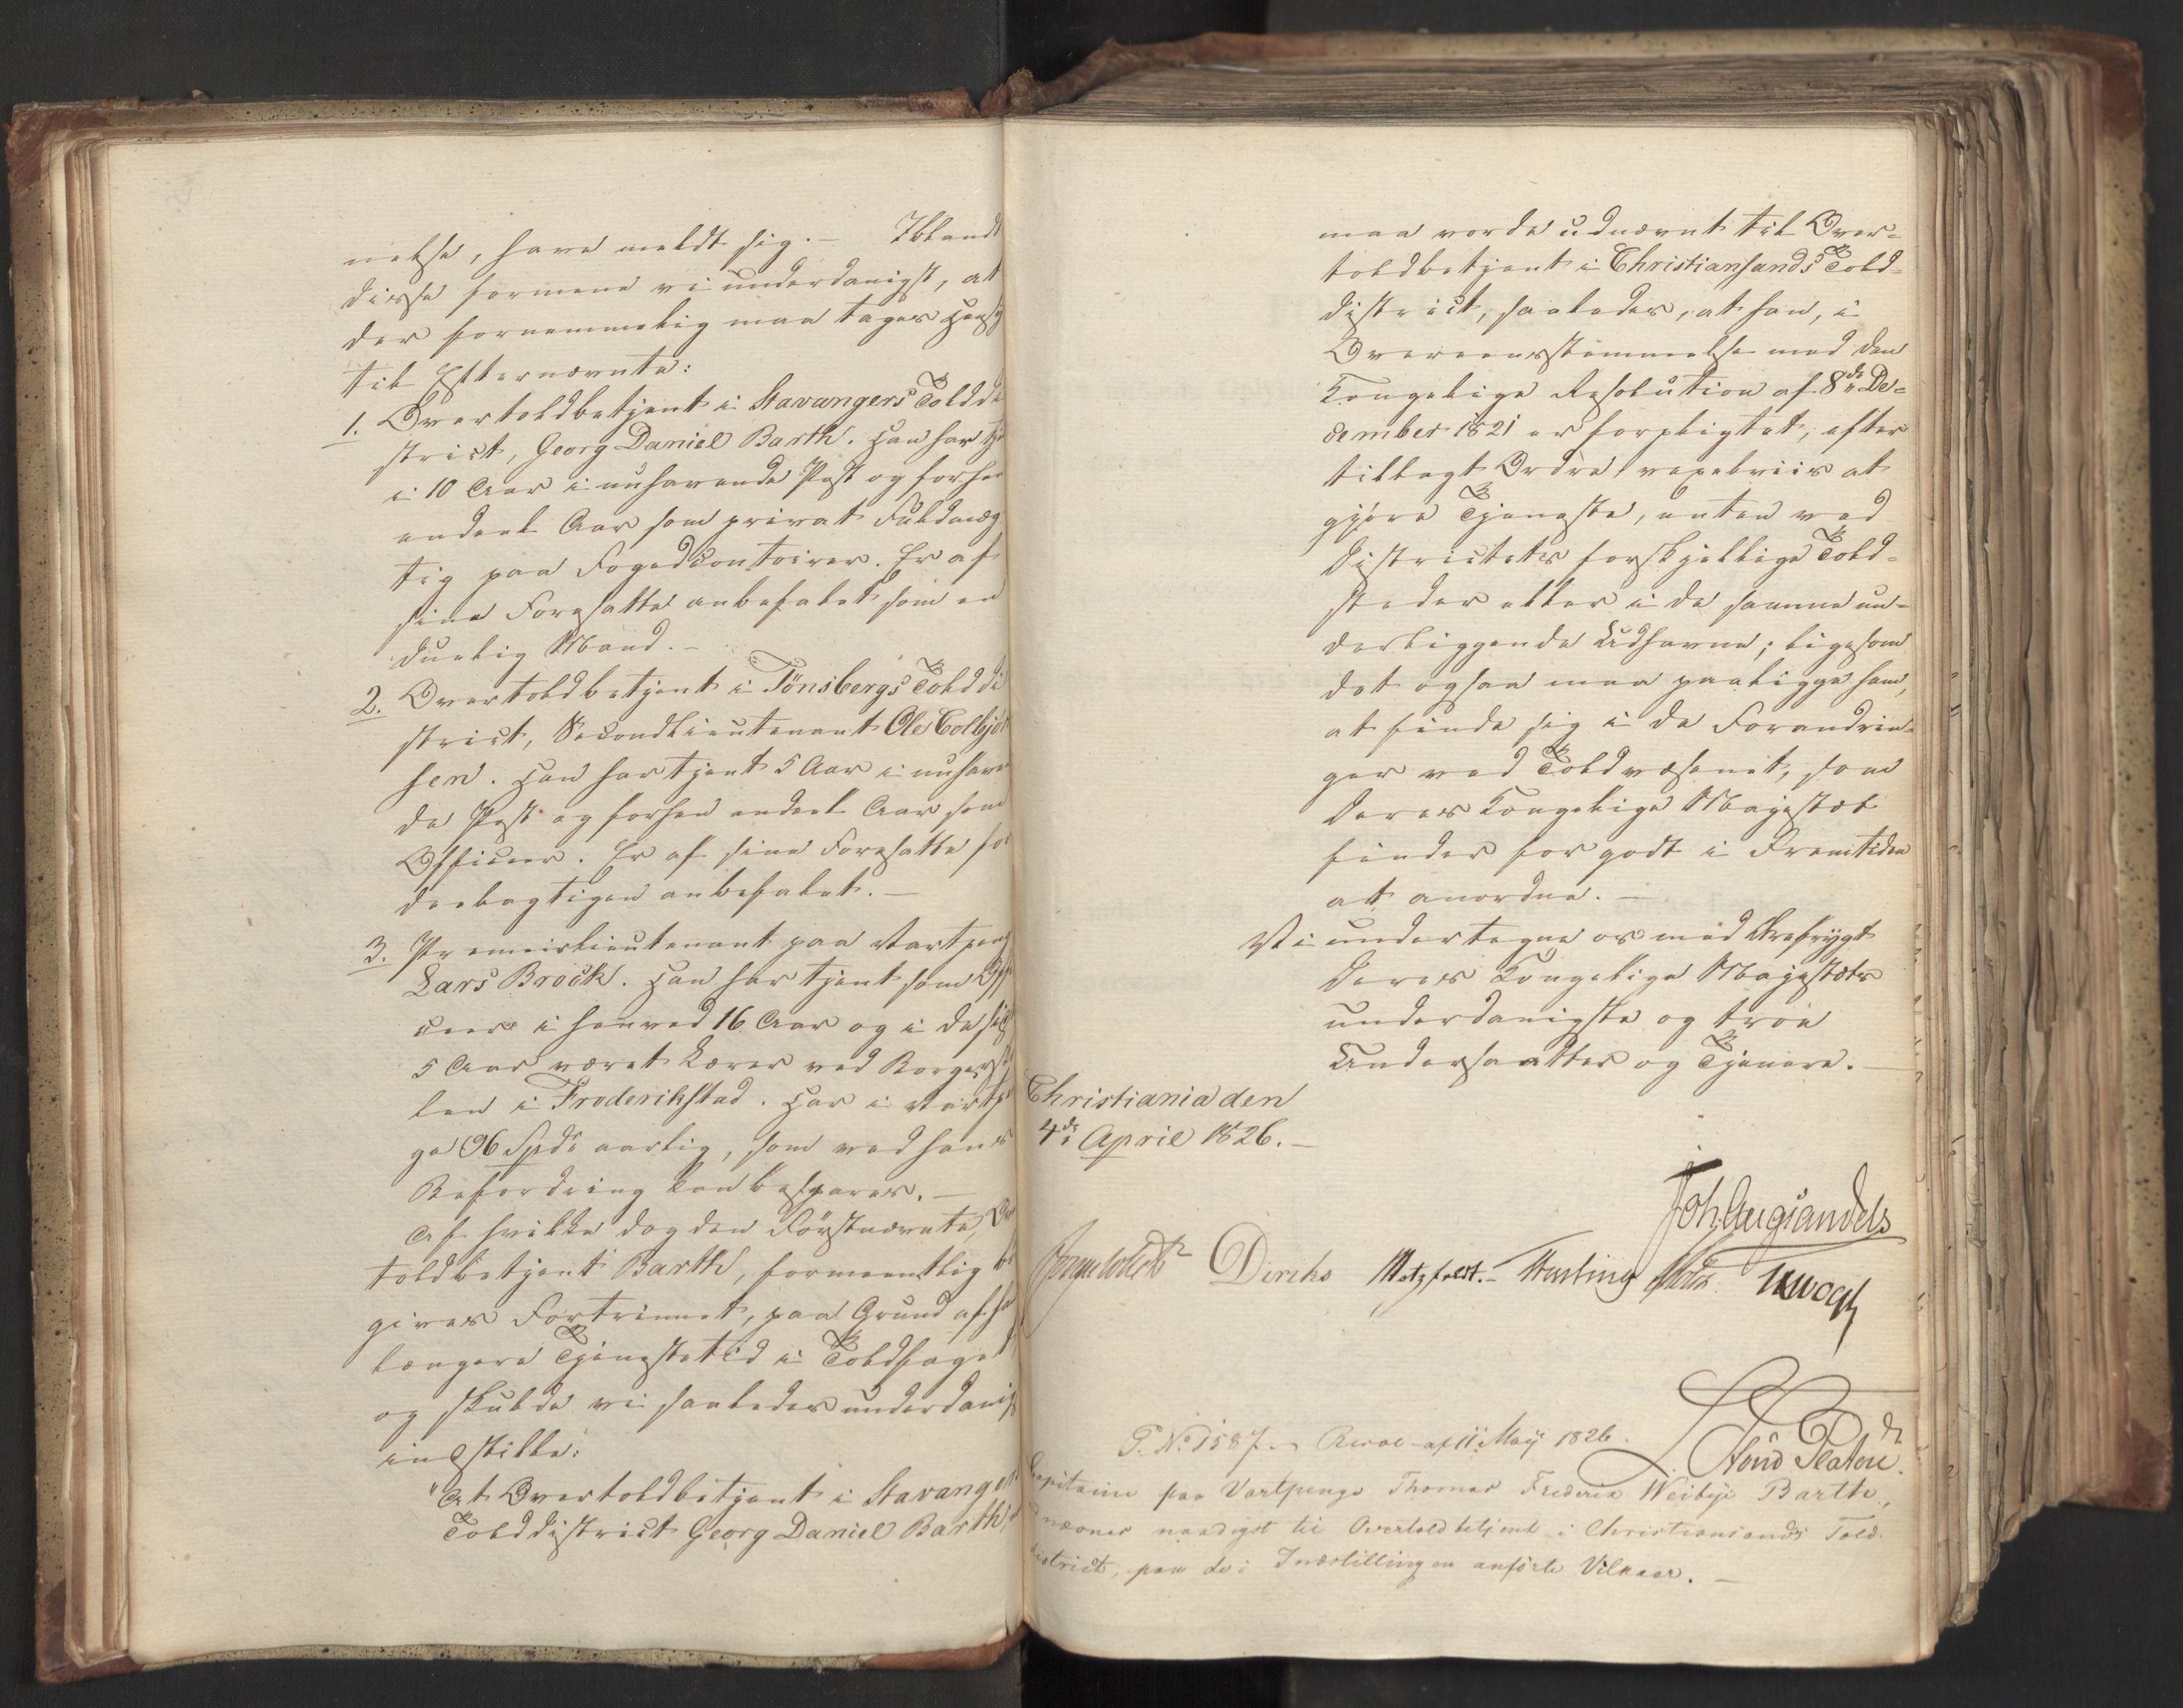 nelse, have meldt sig. – Iblandt
disse formene vi underdanigst, at
der fornemmelig maa tages Hensy
til Efternævnte:
1. Overtoldbetjent i Stavangers Tolddi
strict, Georg Daniel Barth. Han har tje
i 10 Aar i nuhavende Post og forhen
endeel Aar som privat Fuldmæg
tig paa Fogedcontoirer. Er af
sine Foresatte anbefalet som en
duelig Mand. –
2. Overtoldbetjent i Tönsbergs Tolddi
strict, Secondlieutenant Ole Colbjör
sen. Han har tjent 5 Aar i nuhaven
de Post og forhen endeel Aar som
Officeer. Er af sine Foresatte for
deelagtigen anbefalet. –
3. Premierlieutenant paa Vartpenge
Lars Brock. Han har tjent som Offi
ceer i henved 16 Aar og i de sidste
5 Aar været Lærer ved Borgersko
len i Frederikstad. Har i Vartpen
ge 96 Spd. aarlig, som ved hans
Befordring kan bespares. –
Af hvilke dog den Förstnævnte, Over
toldbetjent Barth, formeentlig bör
gives Fortrinnet, paa Grund af hans
længere Tjenestetid i Toldfaget
og skulde vi saaledes underdanigst
indstille:
"At Overtoldbetjent i Stavangers
Tolddistrict Georg Daniel Barth,
maa vorde udnævnt til Over-
toldbetjent i Christiansands Told-
district, saaledes, at han, i
Overeensstemmelse med den
Kongelige Resolution af 8de De-
cember 1821 er forpligtet, efter
tillagt Ordre, vexelviis at
gjöre Tjeneste, enten ved
Districtets forskjellige Told-
steder eller i de samme un-
derliggende Udhavne; ligesom
det ogsaa maa paaligge ham,
at finde sig i de Forandrin-
ger ved Toldvæsenet, som
Deres Kongelige Majestæt
finder for godt i Fremtiden
at anordne. –
Vi undertegne os med Ærefrygt
Deres Kongelige Majestæts
underdanigste og troe
Undersaatter og Tjenere. –
Christiania den
4de April 1826. –
Joh. Aug. Sandels
Diriks Motzfeldt. – Fasting
P. No. 1587. – Resol. af 11 Maij 1826.
Capitaine paa Vartpenge Thomas Frederik Weibye Barth,
udnævnes naadigst til Overtoldbetjent i Christiansands Told-
district, paa de i Indstillingen anförte Vilkaar. –